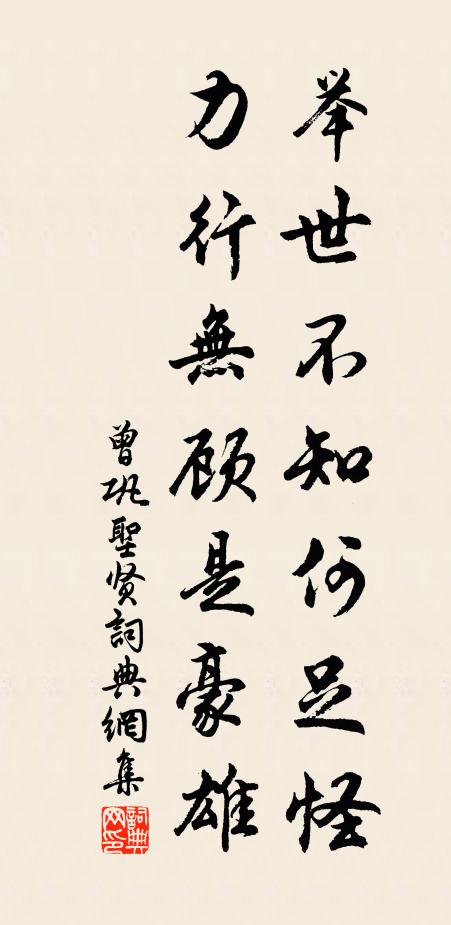 举世不知何足怪
力行無顾是豪雄
曾巩聖贤詞典網集
詞典网印